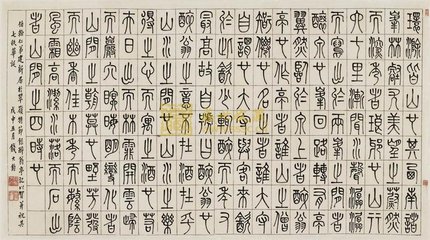 環滁皆山也其西南諸
峯林壑尤美望之蔚然
而深秀者琅琊也山行
六七里漸聞水聲潺潺
而瀉出于兩峯之間者
釀泉也峯回路轉有亭
翼然臨于泉上者醉翁
亭也作亭者誰山之僧
智僊也名之者誰太守
自謂也太守與客來飲
于此飲少輒醉而年又
最高故自號曰醉翁也
醉翁之意不在酒在乎
山水之間也山水之樂
得之心而寓之酒也若
夫日出而林霏開雲歸
而巖穴暝晦明變化者
山間之朝暮也野芳發
而幽香佳木秀而繁陰
風霜高潔水落而石出
者山間之四時也
戊申五月